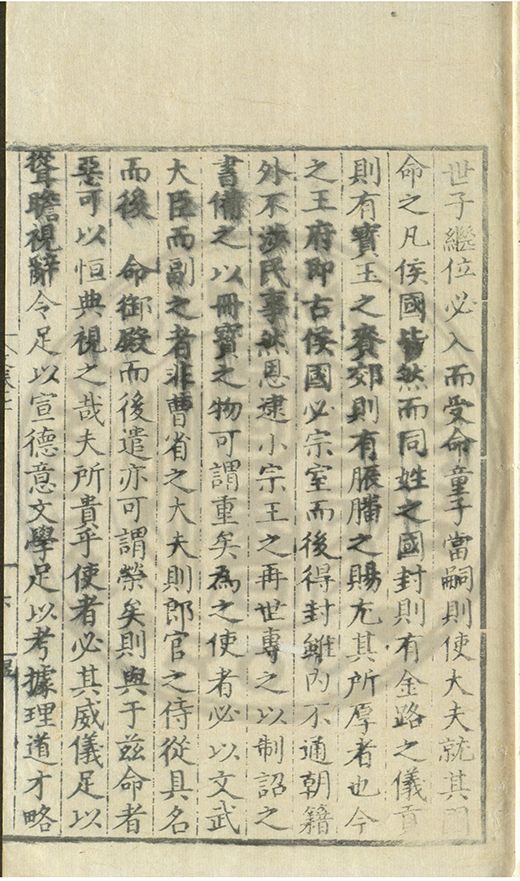 世子繼位必入而受命童子當嗣則使大夫就其門
命之凡侯國皆然而同姓之國封則有金路之儀貢
則有寶玉之賚郊則有脤膰之賜尤其所厚者也今
之王府即古侯國必宗室而後得封雖內不通朝籍
外不涉民事然恩逮小宗王之再世專之以制詔之
書備之以冊寶之物可謂重矣為之使者必以文武
大臣而副之者非曹省之大夫則郎官之侍從具名
而後 命御殿而後遣亦可謂榮矣則與于茲命者
惡可以恒典視之哉夫所貴乎使者必其威儀足以
聳瞻視辭令足以宣德意文學足以考據理道才略